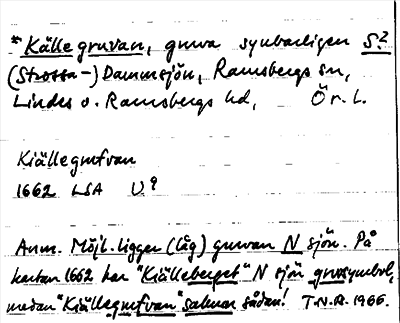 *Källegruvan, gruva synbarligen S?
(Strossa-)Dammsjön, Ramsbergs sn,
Lindes o. Ramsbergs hd, Ör. l.
Kiällegrufvan
1662 LSA U9
Anm. Möjl. ligger (låg) gruvan N sjön. På
kartan 1662 har "Kiälleberget" N sjön gruvsymbol,
medan "Kiällegrufvan" saknar sådan! T.N.R. 1966.